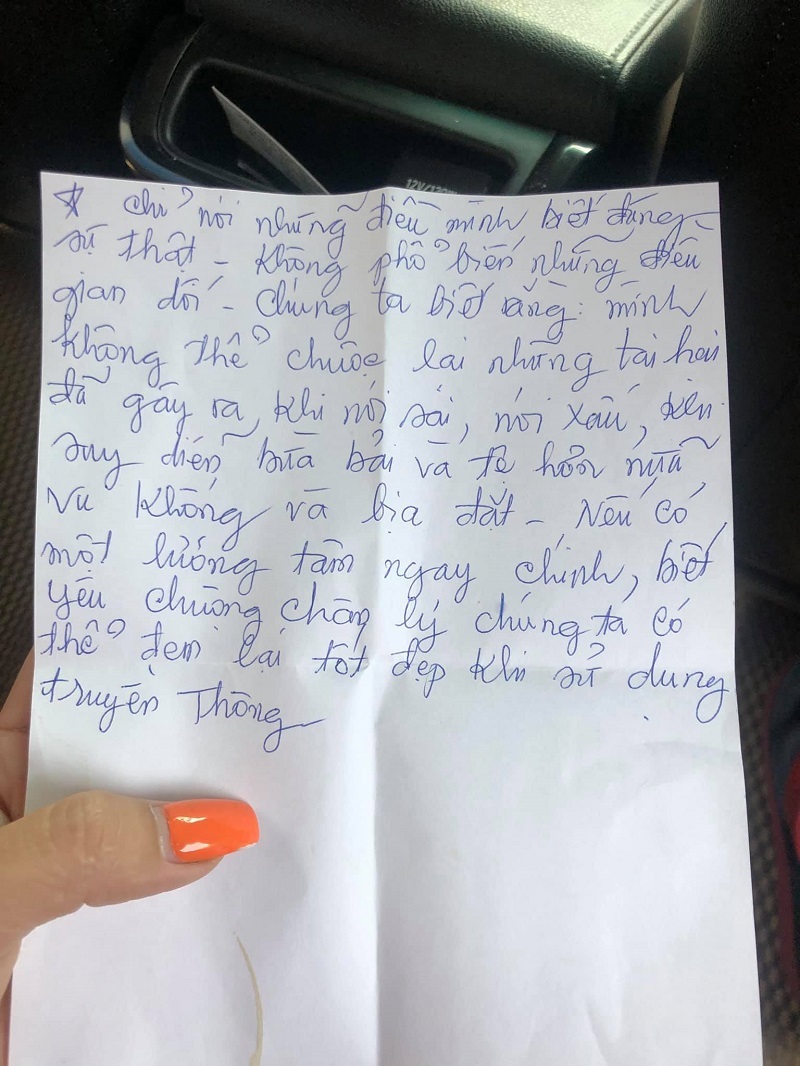 ☆ chỉ nói những điều mình biết đúng
sự thật - không phổ biến những điều
gian dối - chúng ta biết rằng: mình
không thể chuộc lại những tai hại
đã gây ra, khi nói sai, nói xấu,
suy diễn bừa bãi và tệ hơn nữa
vu khống và bịa đặt - Nếu có
một lương tâm ngay chính, biết
yêu chuộng chân lý chúng ta có
thể đem lại tốt đẹp khi sử dung
truyền Thông
12V/120W